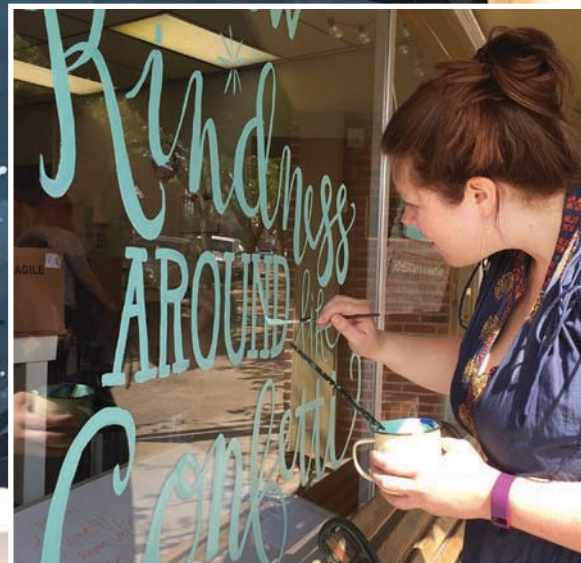 Kindness
AROUND like
Confetti
AGILE